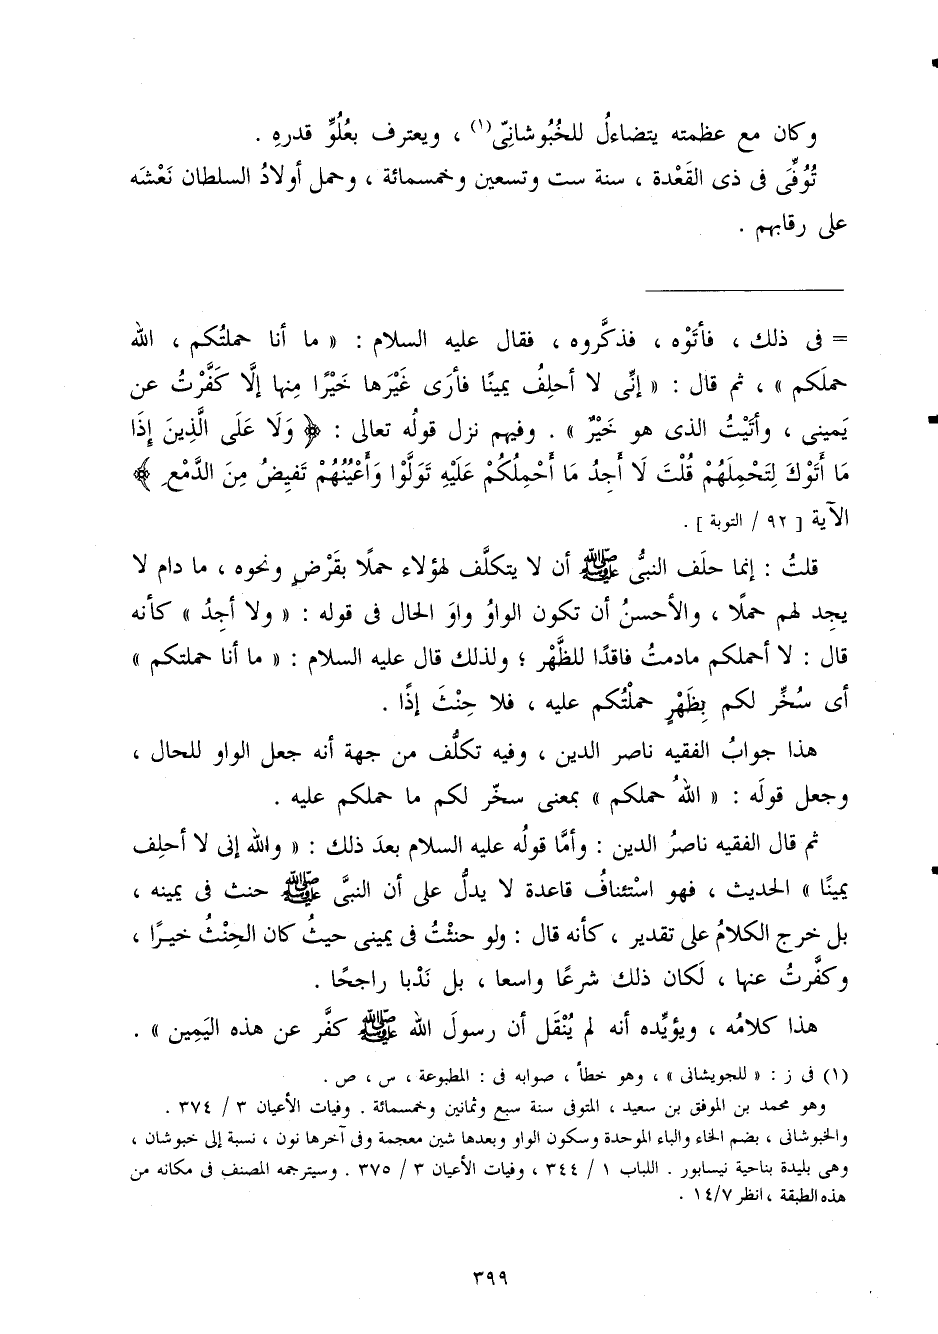 وكان مع عظمته يتضاءلُ للخُبُوشانِىّ(١) ، ويعترف بعُلُوِّ قدرهِ .
تُوُفِّىَ فى ذى القَعْدة ، سنة ست وتسعين وخمسمائة ، وحمل أولادُ السلطان نَعْشَه
على رقابهم .
= فى ذلك ، فأتَوْه ، فذكَّروه ، فقال عليه السلام : « ما أنا حملتُكم ، الله
حملَكم » ، ثم قال : « إنِّى لا أحلِفُ يمينًا فأرَى غَيْرَها خَيْرًا مِنها إلَّا كَفَّرْتُ عن
يَمينى ، وأتَيْتُ الذى هو خَيْرٌ » . وفيهم نزل قولُه تعالى : ﴿ وَلَا عَلَى الَّذِينَ إِذَا
مَا أَتَوْكَ لِتَحْمِلَهُمْ قُلْتَ لَا أَجِدُ مَا أَحْمِلُكُمْ عَلَيْهِ تَوَلَّوْا وَأَعْيُنُهُمْ تَفِيضُ مِنَ الدَّمْعِ ﴾
الآية [ ٩٢ / التوبة ] .
قلتُ : إنما حلَف النبىُّ ﷺ أن لا يتكلَّف لهؤلاء حملًا بقَرْضٍ ونحوه ، ما دام لا
يجد لهم حملًا ، والأحسنُ أن تكون الواوُ واوَ الحال فى قوله : « ولا أجِدُ » كأنه
قال : لا أحملكم مادمتُ فاقدًا للظَّهْر ؛ ولذلك قال عليه السلام : « ما أنا حملتكم »
أى سُخِّر لكم بِظَهْرٍ حملْتُكم عليه ، فلا حِنْثَ إذًا .
هذا جوابُ الفقيه ناصر الدين ، وفيه تكلُّف من جهة أنه جعل الواو للحال ،
وجعل قولَه : « اللهُ حملكم » بمعنى سخّر لكم ما حملكم عليه .
ثم قال الفقيه ناصرُ الدين : وأمَّا قولُه عليه السلام بعدَ ذلك : « والله إنى لا أحلِف
يمينًا » الحديث ، فهو اسْتئنافُ قاعدة لا يدلُّ على أن النبىَّ ﷺ حنث فى يمينه ،
بل خرج الكلامُ على تقدير ، كأنه قال : ولو حنثْتُ فى يمينى حيثُ كان الحِنْثُ خيـرًا ،
وكفَّرتُ عنها ، لَكان ذلك شرعًا واسعا ، بل نَدْبا راجحًا .
هذا كلامُه ، ويؤيِّده أنه لم يُنْقَل أن رسولَ الله ﷺ كفَّر عن هذه اليَمِين » .
(١) فى ز : « للجويشانى » ، وهو خطأ ، صوابه فى : المطبوعة ، س ، ص .
وهو محمد بن الموفق بن سعيد ، المتوفى سنة سبع وثمانين وخمسمائة . وفيات الأعيان ٣ / ٣٧٤ .
والخبوشانى ، بضم الخاء والباء الموحدة وسكون الواو وبعدها شين معجمة وفى آخرها نون ، نسبة إلى خبوشان ،
وهى بليدة بناحية نيسابور . اللباب ١ / ٣٤٤ ، وفيات الأعيان ٣ / ٣٧٥ . وسيترجمه المصنف فى مكانه من
هذه الطبقة ، انظر ١٤/٧ .
٣٩٩